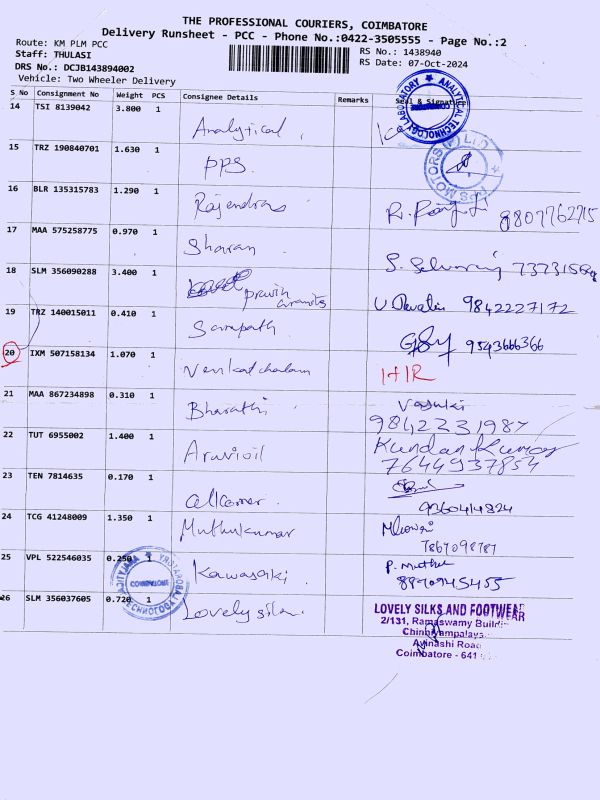 THE PROFESSIONAL COURIERS, COIMBATORE
Delivery Runsheet - PCC - Phone No.:0422-3505555 - Page No.:2
Route: KM PLM PCC
Staff: THULASI
DRS No.: DCJB143894002
Vehicle: Two Wheeler Delivery
RS No.: 1438940
RS Date: 07-Oct-2024
S No Consignment No Weight PCS Consignee Details Remarks Seal & Signature
14 TSI 8139042 3.800 1 Analytical
ANALYTICAL TECHNOLOGY LABORATORY
15 TRZ 190840701 1.630 1 PPS
PPS MOTORS (P) LTD
16 BLR 135315783 1.290 1 Rajendras 8807762715
17 MAA 575258775 0.970 1 Sharan
18 SLM 356090288 3.400 1 pravin 9842227172
19 TRZ 140015011 0.410 1 Sampath 9543666366
20 IXM 507158134 1.070 1 Venkatchalam
21 MAA 867234898 0.310 1 Bharathi Vasuki
22 TUT 6955002 1.400 1 Aravioil Kundan Kumar
7644937854
23 TEN 7814635 0.170 1
9360414824
24 TCG 41248009 1.350 1 Muthukumar
7867098787
25 VPL 522546035 0.250 1 Kawasaki P. Muthu
COIMBATORE
26 SLM 356037605 0.720 1 Lovely silk
LOVELY SILKS AND FOOTWEAR
2/131, Ramaswamy
Chinniyampalayam
Avinashi Road
Coimbatore - 641